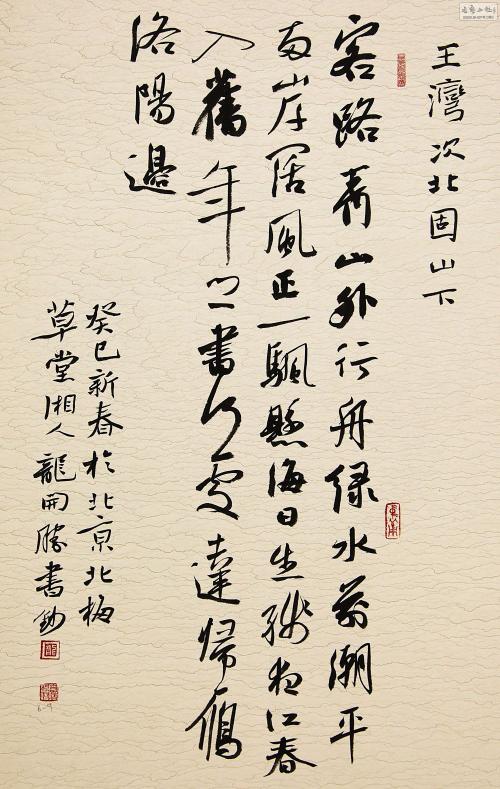 王灣次北固山下
客路青山外行舟绿水前潮平
兩岸阔風正一颿懸海日生殘夜江春
入舊年鄉書何處達歸雁
洛陽邊
癸巳新春於北京北梅
草堂湘人龍開勝書鈔
6-9